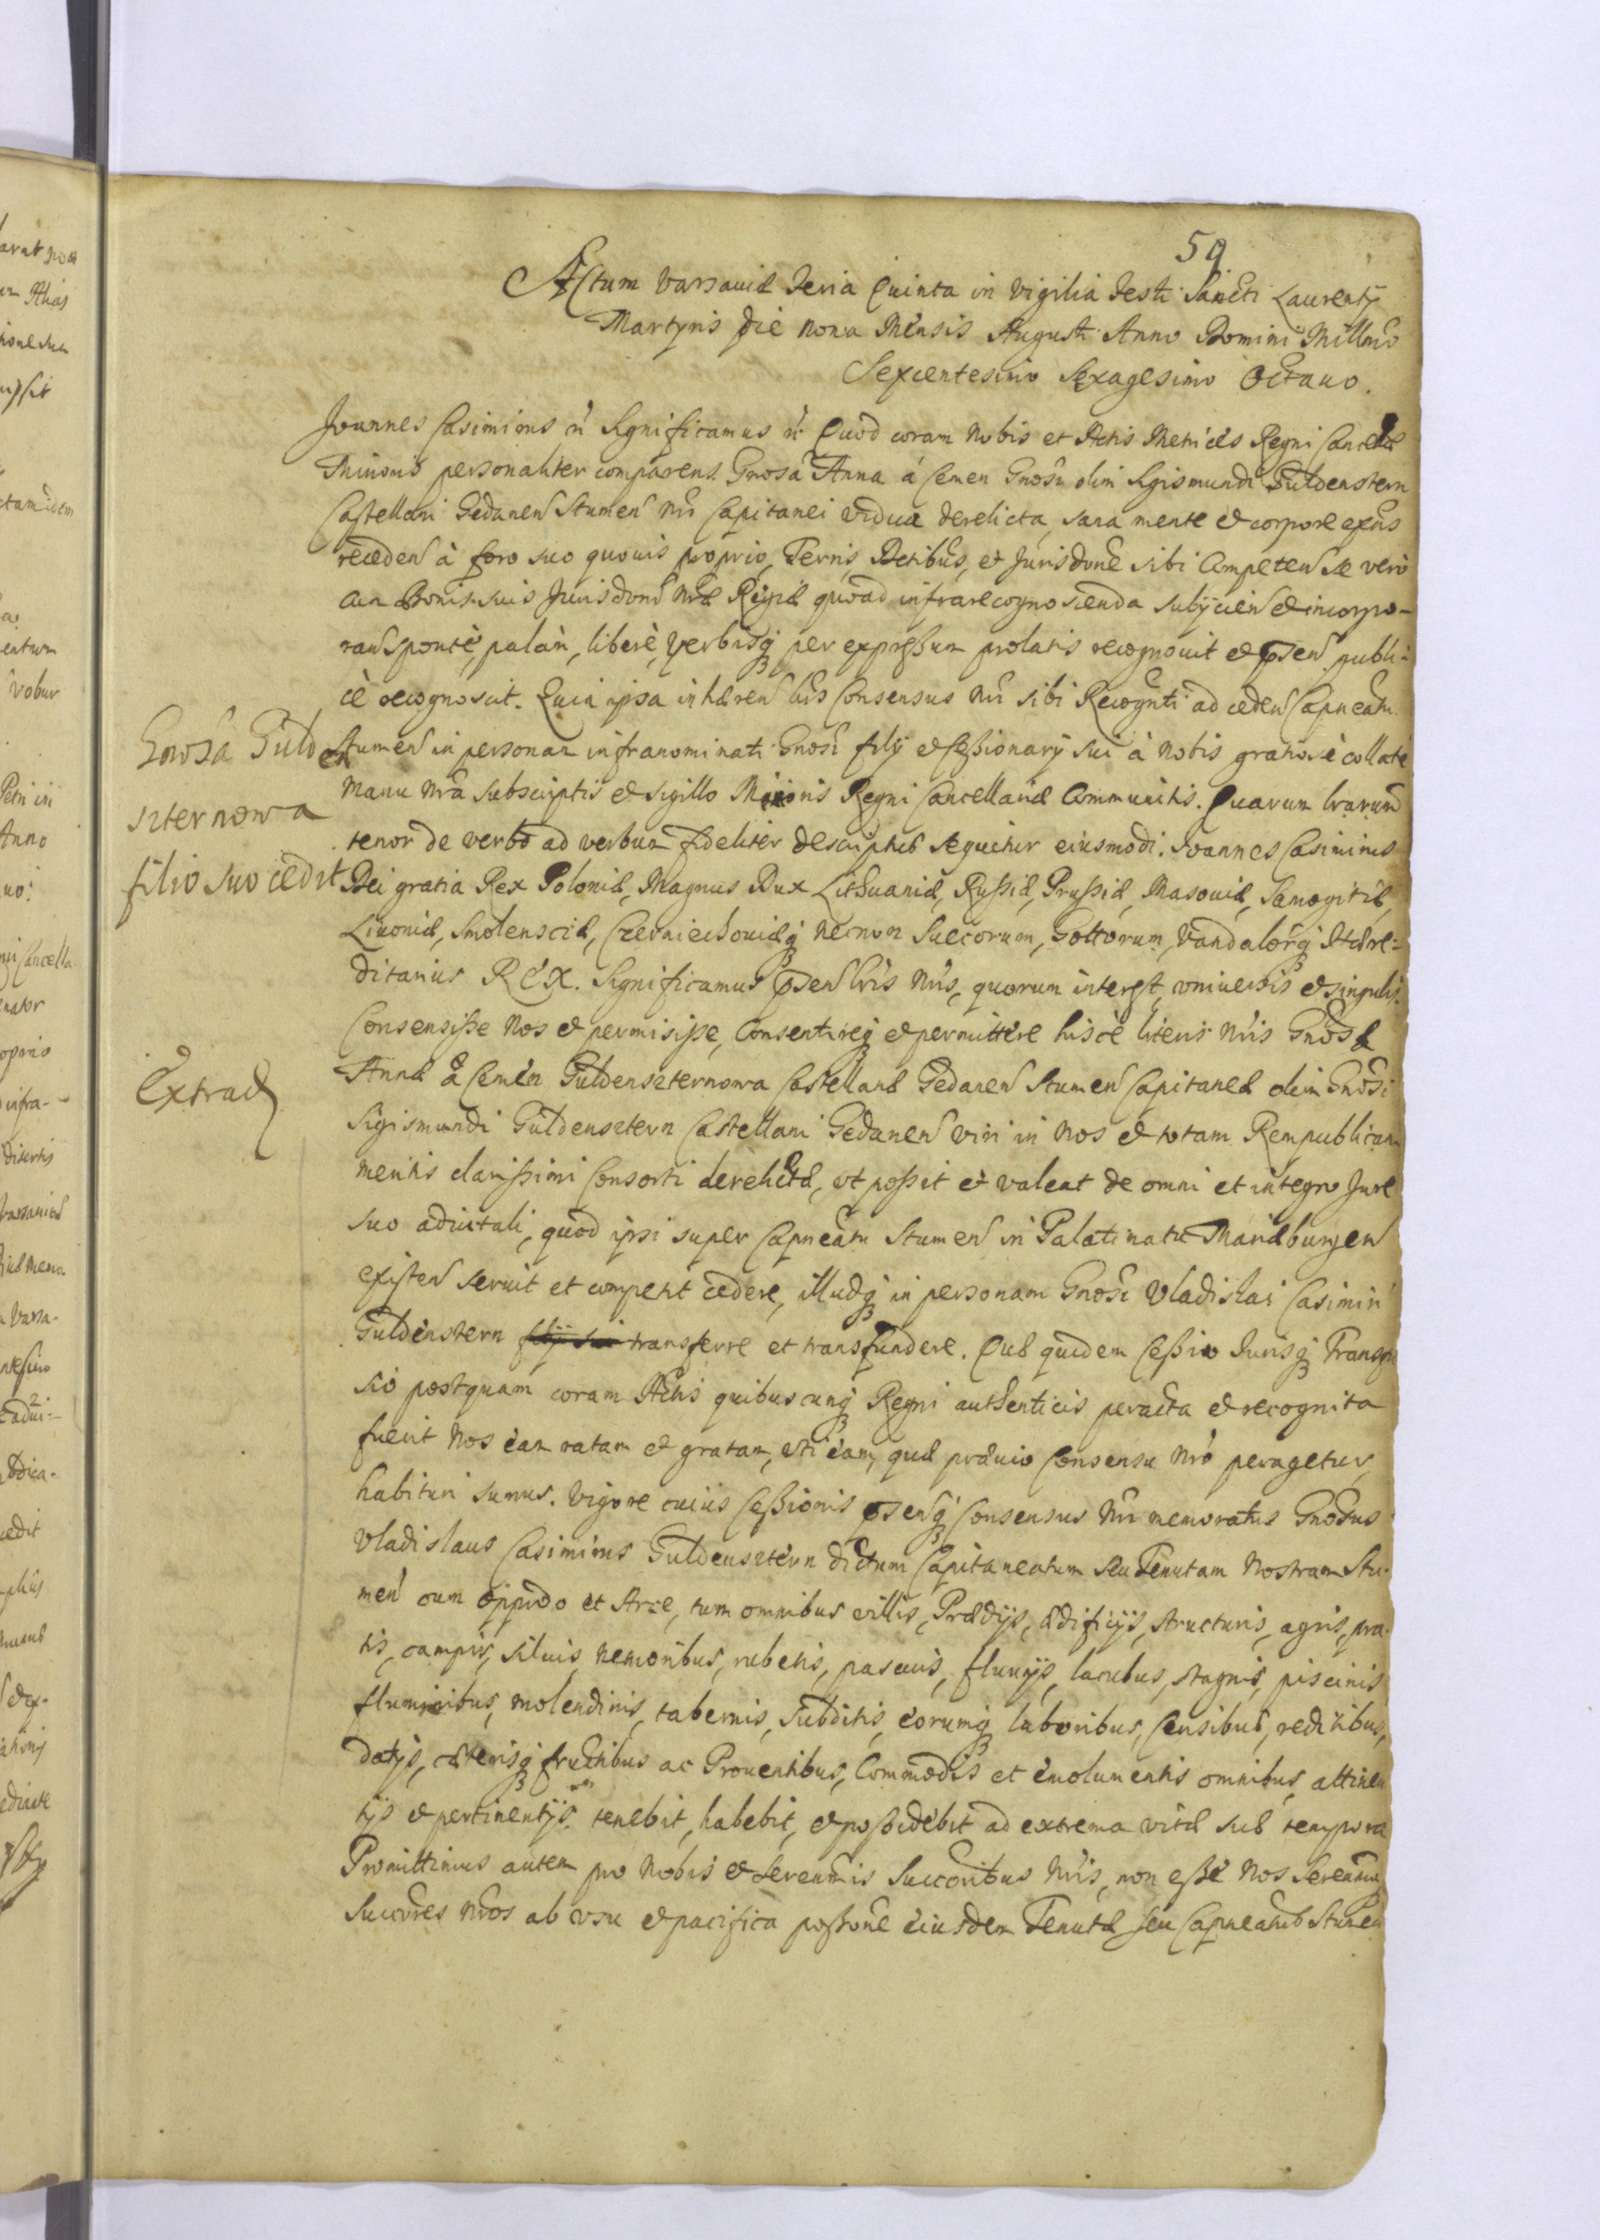 59
Actum Varsauiæ Feria Quinta in Vigilia Festi Sancti Laurentÿ
Martyris die nona Mensis Augusti Anno Domini Millmo
Sexcentesimo Sexagesimo Octauo.
Joannes Casimirus etc Significamus etc Quod coram Nobis et Actis Metrices Regni Cancellæ
Minoris personaliter comparens Gnosa Anna á Cemen Gnosi olim Sigismundi Guldenstern
Castellani Gedanen Stumen nri Capitanei vidua derelicta, sana mente et corpore exns
receden à foro suo quouis proprio, Terris, Actibus, et Jurisdone sibi Competen se vero
cum Bonis suis Jurisdoni nræ Regiæ quoad infrarecognoscenda subÿcien et incorpo-
ran sponte, palam, libere, verbisq per expressum prolatis recognouit et pnsen publi-
cè recognoscit. Quia ipsa inhæren lris Consensus nri sibi ad ceden Capneatu
Gnosa Guld en
szternowa
filio suo cedit
Stumen in personam infranominati Gnosi filÿ et Cessionarÿ sui à nobis gratiose collatè
Manu nra subscriptis et sigillo Minoris Regni Cancellariæ Communitis. Quarum lrarum
tenor de verbo ad verbum fideliter descriptus sequitur eiusmodi. Joannes Casimirus
Dei gratia Rex Poloniæ, Magnus Dux Lithuaniæ, Russiæ, Prussiæ, Masouiæ, Samogitiæ,
Liuoniæ, Smolensciæ, Czerniechouiæq necnon Suecorum, Gottorum, Vandalorq Hære-
ditarius REX. Significamus pnsen lris nris, quorum interest, vniuersis et singulis.
Consensisse Nos et permisisse, Consentireq et permittere hisce literis nris Gnosæ
Extrad
Annæ à Cemen Guldenszternowa Castellanæ Gedanen Stumen Capitaneæ olim Gnosi
Sigismundi Guldensztern Castellani Gedanen viri in Nos et totam Rempublicam
meritis clarissimi Consorti derelictæ, vt possit et valeat de omni et integro Jure
suo aduitali, quod ipsi super Capneatu Stumen in Palatinatu Mariæburgen
existen seruit et competit cedere, illudq in personam Gnosi Vladislai Casimiri
Guldenstern filÿ sui transferre et transfundere. Quæ quidem Cessio Jurisq Transfu
sio postquam coram Actis quibuscunq Regni authenticis peracta et recognita
fuerit Nos eam ratam et gratam, vti eam, quæ præuio Consensu nro peragetur,
habituri sumus. Vigore cuius Cessionis pnsenq Consensus nri memoratus Gnosus
Vladislaus Casimirus Guldensztern dictum Capitaneatum seu Tenutam Nostram Stu-
men cum oppido et Arce, tum omnibus villis, Prædÿs, ædificÿs, structuris, agris, pra-
tis, campis, siluis, nemoribus, rubetis, pascuis, fluuÿs, lacubus, stagnis, piscinis
fluminibus, molendinis, tabernis, subditis, eorumq laboribus, Censibus, reditibus,
datÿs, cæterisq fructibus ac Prouentibus, Commodis et emolumentis omnibus, attinen
tÿs et pertinentÿs tenebit, habebit, et possidebit ad extrema vitæ suæ tempora
Promittimus autem pro Nobis et Serenmis Succoribus nris, non esse Nos Serenmosq
Succores nros ab vsu et pacifica possone eiusdem Tenutæ seu Capneatus Stumen